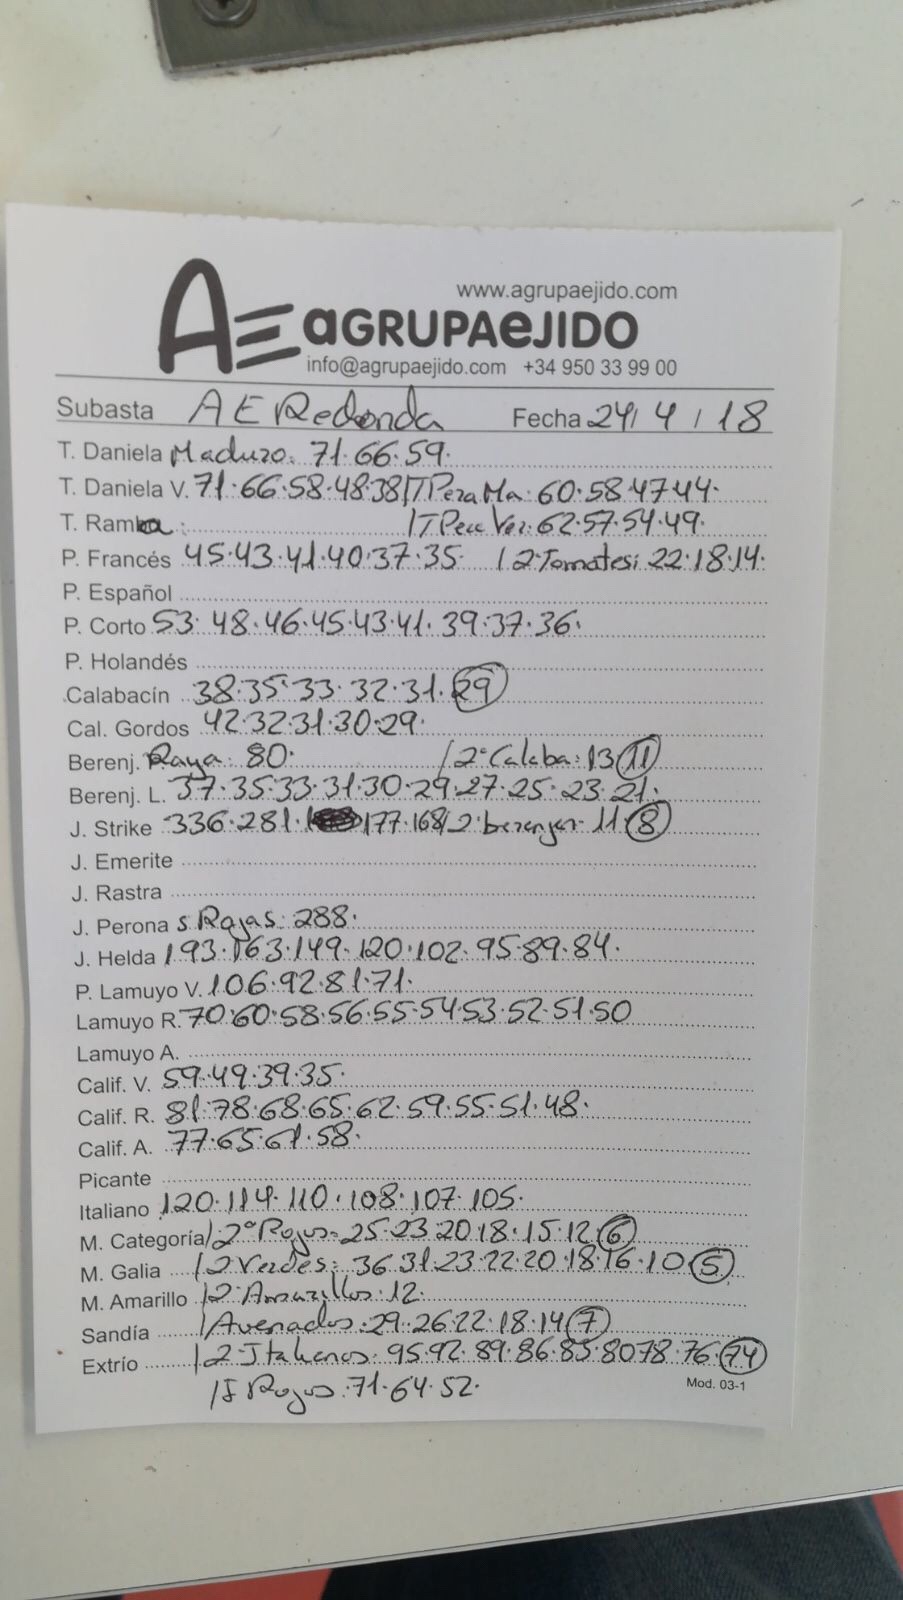 www.agrupaejido.com
AE AGRUPAEJIDO
info@agrupaejido.com +34 950 33 99 00
Subasta AE Redonda Fecha 24/4/18
T. Daniela Maduro: 71·66·59·
T. Daniela V. 71·66·58·48·38/T Pera Ma: 60·58·47·44·
T. Ramba: /T Pera Ver: 62·57·54·49·
P. Francés 45·43·41·40·37·35 /2ª Tomates: 22·18·14·
P. Español
P. Corto 53·48·46·45·43·41·39·37·36·
P. Holandés
Calabacín 38·35·33·32·31·29
Cal. Gordos 42·32·31·30·29·
Berenj. Raya: 80· /2ª Calaba: 13·11
Berenj. L. 37·35·33·31·30·29·27·25·23·21·
J. Strike 336·281· 177·168/2ª berenjer· 11·8
J. Emerite
J. Rastra
J. Perona S Rojas: 288·
J. Helda 193·163·149·120·102·95·89·84·
P. Lamuyo V. 106·92·81·71·
Lamuyo R. 70·60·58·56·55·54·53·52·51·50
Lamuyo A.
Calif. V. 59·49·39·35·
Calif. R. 81·78·68·65·62·59·55·51·48·
Calif. A. 77·65·61·58·
Picante
Italiano 120·114·110·108·107·105·
M. Categoría /2ª Rojos: 25·23·20·18·15·12·6
M. Galia /2 Verdes: 36·31·23·22·20·18·16·10·5
M. Amarillo /2ª Amarillos: 12·
Sandía /Avenados: 29·26·22·18·14·7
Extrío /2·Italianos: 95·92·89·86·85·80·78·76·74
/I Rojos: 71·64·52·
Mod. 03-1